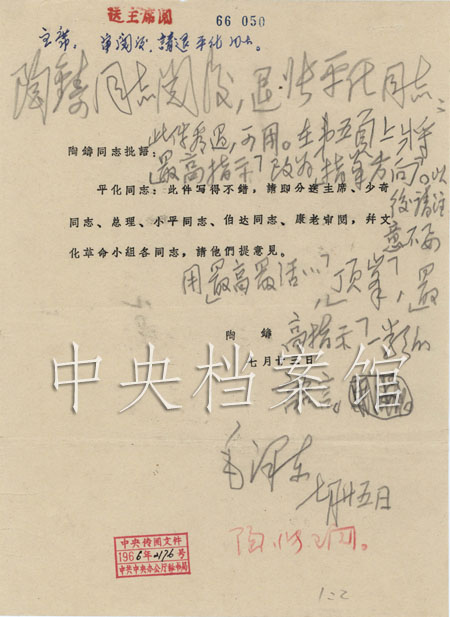 送主席阅
66 050
主席。审阅后,請退平化同志。
陶鑄同志阅后,退张平化同志:
此件看过,可用。在第五頁上将
陶鑄同志批語:
「最高指示」改为「指軍方向」。以
平化同志:此件写得不錯,請即分送主席、少奇
后請注
同志、总理、小平同志、伯达同志、康老审閱,幷文
意不要
化革命小組各同志,請他們提意見。
用「最高最活…」,「頂峯」,「最
陶 鑄
高指示」一类的
七月廿三日
語言。
中央档案馆
毛泽东
七月廿五日
陶
阅。
中央传阅文件
1966年2176号
中共中央办公厅秘书局